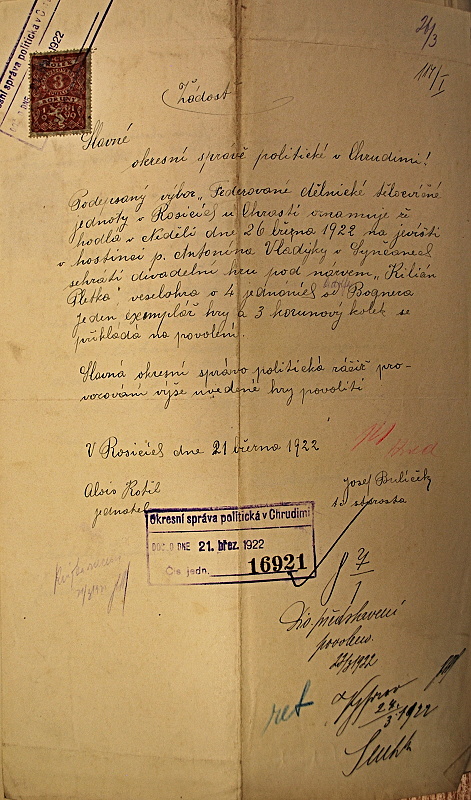 okresní správa politická v Chrudimi
1922
26/3
117/I
KOLEK
3
KORUNY
Žádost
Slavné
okresní správě politické v Chrudimi!
Podepsaný výbor „Federované dělnické tělocvičné
jednoty v Rosicích u Chrasti oznamuje že
hodlá v Neděli dne 26 března 1922 na jevišti
v hostinci p. Antonína Vládyky v Synčanech
sehráti divadelní hru pod názvem „Kilián
Pletka", veselohra o 4 jednáních od Bognera
Jeden exemplář hry a 3 korunový kolek se
přikládá na povolení.
Slavná okresní správo politická račiž pro-
vozování výše uvedené hry povoliti
V Rosicích dne 21 března 1922
Alois Kotil
jednatel
Josef
starosta
Okresní správa politická v Chrudimi
DOŠLO DNE 21. břez. 1922
Čís. jedn. 16921
Div. představení
povoleno.
22/3 1922
ret
24/3 1922